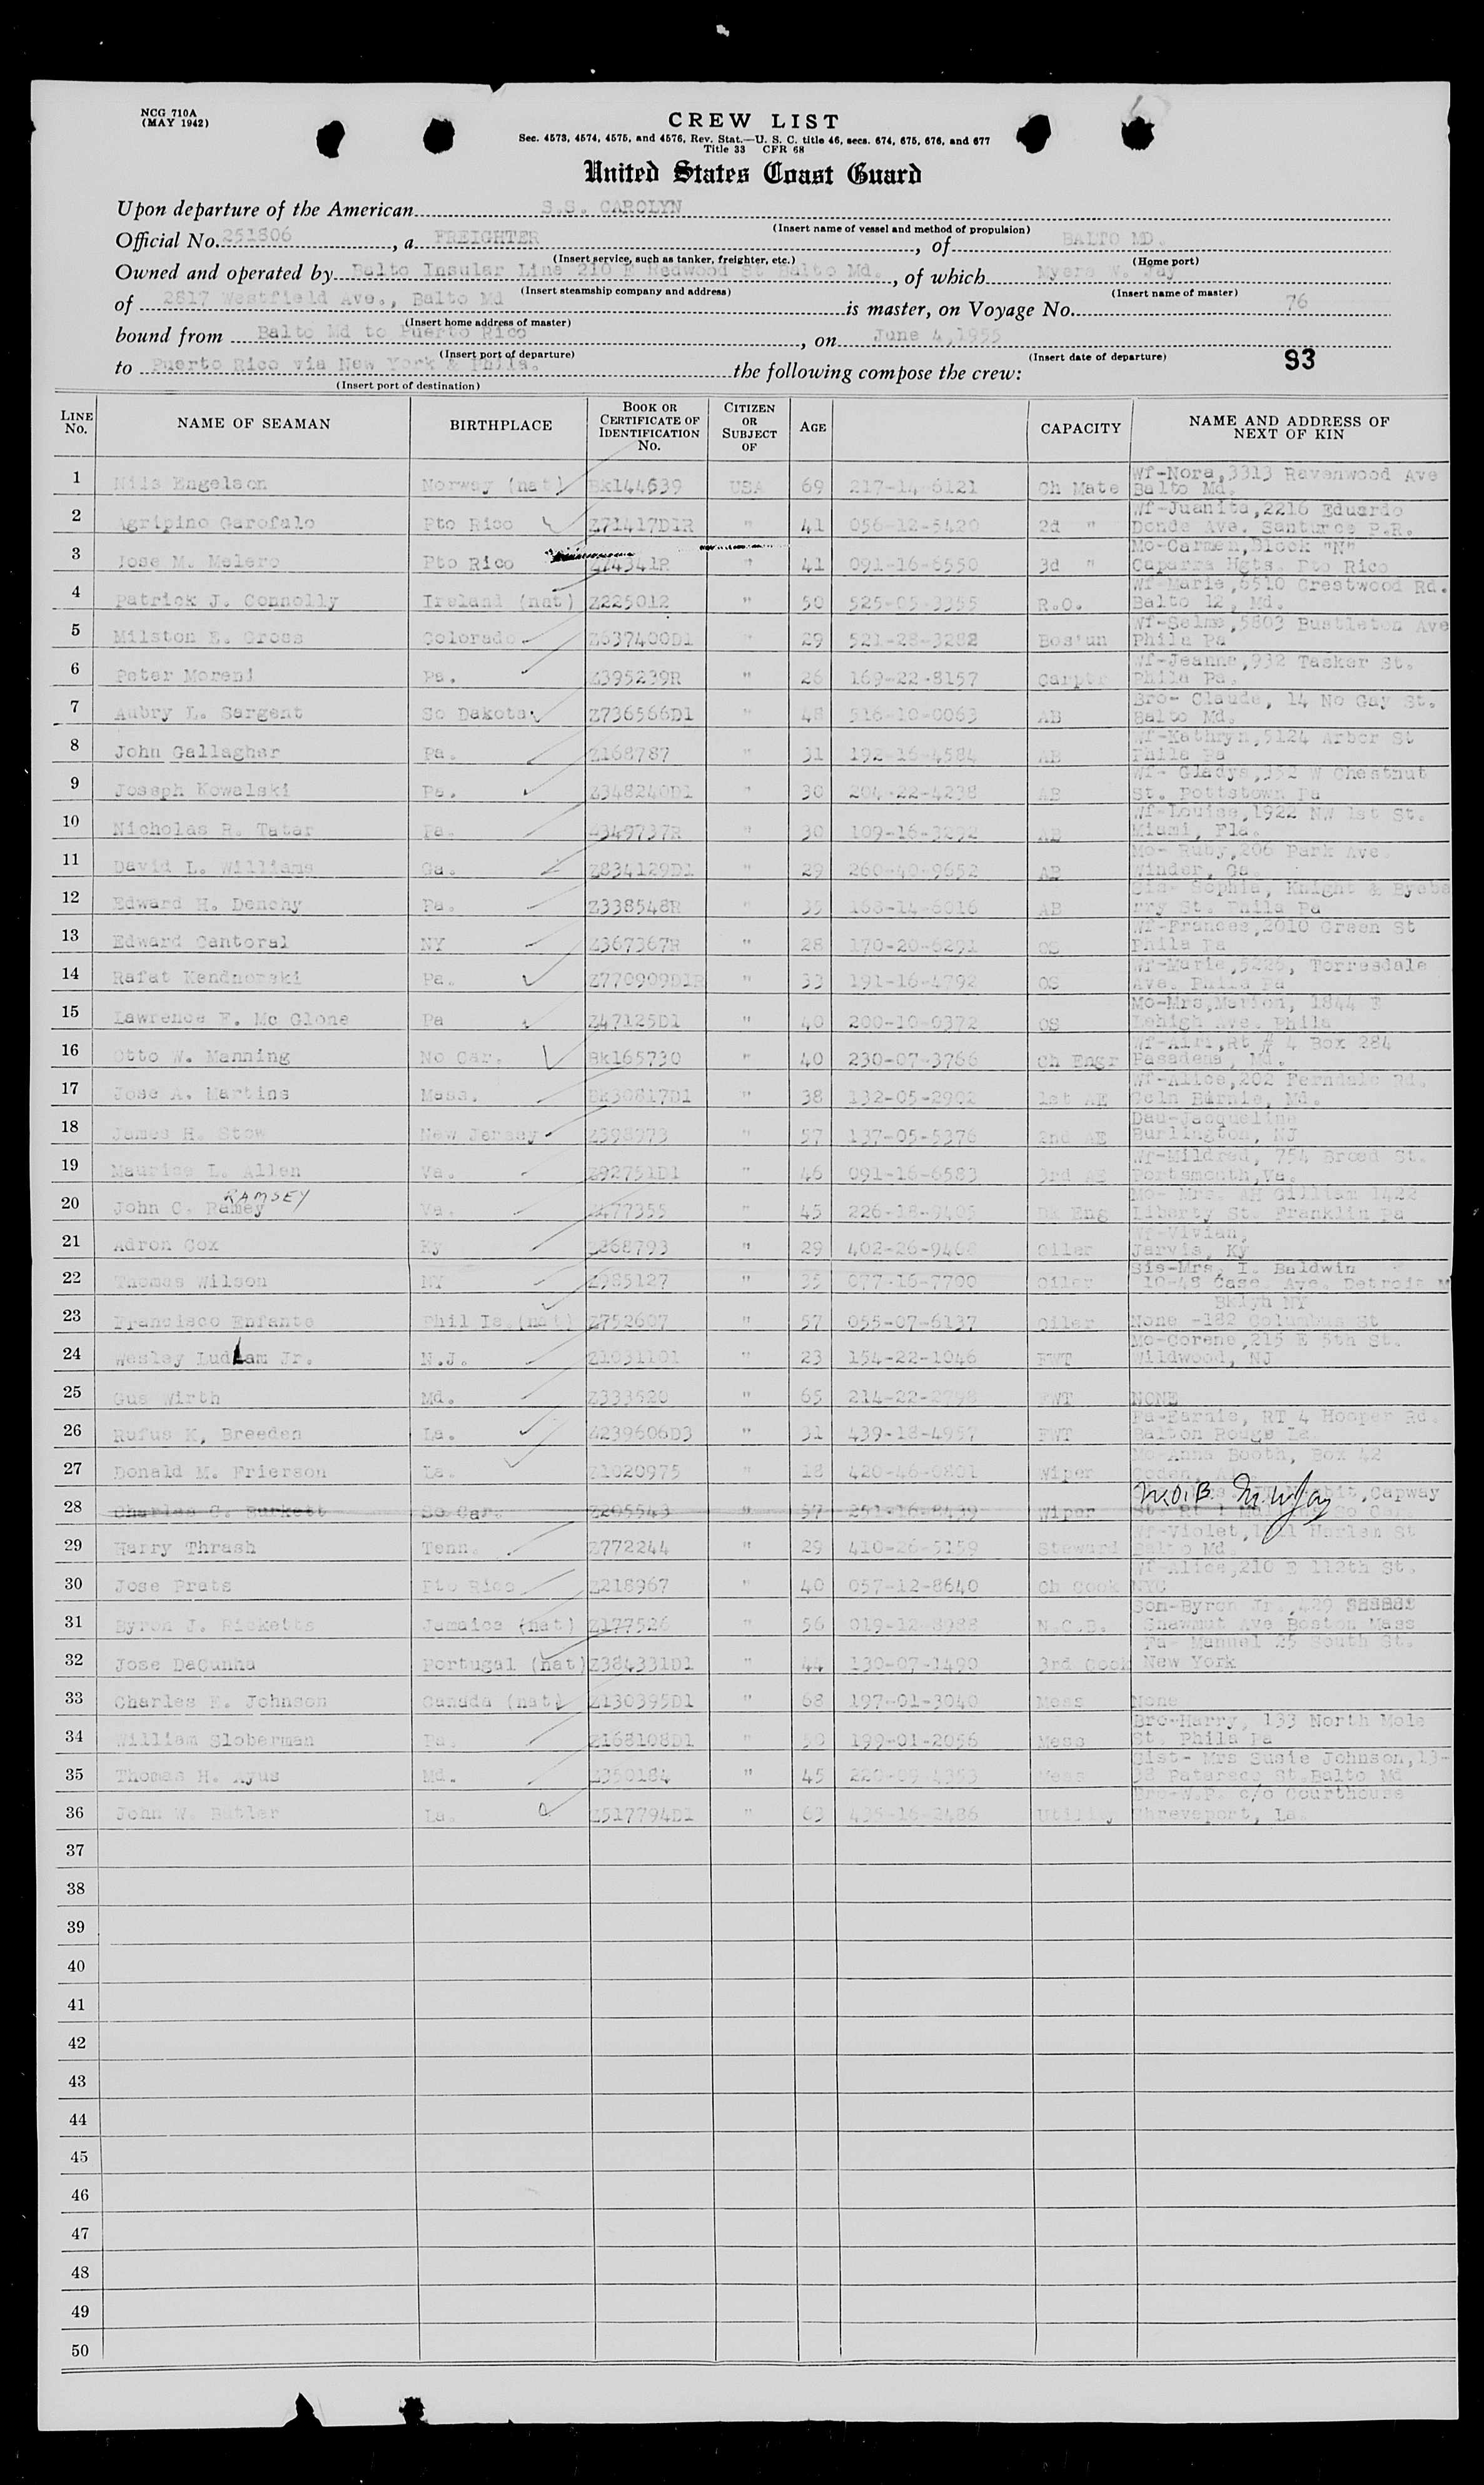 NCG 710A
(MAY 1942)
CREW LIST
Sec. 4573, 4574, 4575, and 4576, Rev. Stat.—U. S. C. title 46, secs. 674, 675, 676, and 677
Title 33 CFR 68
United States Coast Guard
Upon departure of the American S.S. CAROLYN
(Insert name of vessel and method of propulsion)
Official No. 251806, a FREIGHTER, of BALTO MD.
(Insert service, such as tanker, freighter, etc.) (Home port)
Owned and operated by Balto Insular Line 210 E Redwood St Balto Md., of which Myers W. Jay
(Insert steamship company and address) (Insert name of master)
of 2817 Westfield Ave., Balto Md is master, on Voyage No. 76
(Insert home address of master)
bound from Balto Md to Puerto Rico, on June 4, 1955
(Insert port of departure) (Insert date of departure)
to Puerto Rico via New York & Phila. the following compose the crew: 93
(Insert port of destination)
LINE No. NAME OF SEAMAN BIRTHPLACE BOOK OR CERTIFICATE OF IDENTIFICATION No. CITIZEN OR SUBJECT OF AGE CAPACITY NAME AND ADDRESS OF NEXT OF KIN
1 Nils Engelson Norway (nat) Bk144639 USA 69 217-14-6121 Ch Mate Wf-Nora, 3313 Ravenwood Ave Balto Md.
2 Agripino Garofalo Pto Rico Z71417D1R " 41 056-12-5420 2d " Wf-Juanita, 2216 Eduardo Donde Ave. Santurce P.R.
3 Jose M. Melero Pto Rico " 41 091-16-6550 3d " Mo-Carmen, Block "N" Caparra Hgts. Pto Rico
4 Patrick J. Connolly Ireland (nat) Z225012 " 50 525-05-3355 R.O. Wf-Marie, 6510 Crestwood Rd. Balto 12, Md.
5 Milston E. Gross Colorado Z637400D1 " 29 521-28-3282 Bos'un Wf-Selma, 5803 Bustleton Ave Phila Pa
6 Peter Moreni Pa. Z395239R " 26 169-22-8157 Carptr Wf-Jeanne, 932 Tasker St. Phila Pa.
7 Aubry L. Sargent So Dakota Z736566D1 " 48 516-10-0063 AB Bro- Claude, 14 No Gay St. Balto Md.
8 John Gallagher Pa. Z168787 " 31 192-16-4584 AB Wf-Kathryn, 5124 Arbor St Phila Pa
9 Joseph Kowalski Pa. Z348240D1 " 30 204-22-4238 AB Wf- Gladys, 352 W Chestnut St. Pottstown Pa
10 Nicholas R. Tatar Pa. Z349737R " 30 109-16-3292 AB Wf-Louise, 1922 NW 1st St. Miami, Fla.
11 David L. Williams Ga. Z834129D1 " 29 260-40-9652 AB Mo- Ruby, 206 Park Ave. Winder, Ga.
12 Edward H. Denchy Pa. Z338548R " 35 168-14-6016 AB Sis- Sophia, Knight & Byebe rry St. Phila Pa
13 Edward Cantoral NY Z367367R " 28 170-20-6291 OS Wf-Frances, 2010 Green St Phila Pa
14 Rafat Kendnerski Pa. Z770909D1R " 33 191-16-4792 OS Wf-Marie, 5226, Torresdale Ave. Phila Pa
15 Lawrence F. Mc Glone Pa Z47125D1 " 40 200-10-0372 OS Mo-Mrs, Marion, 1844 E Lehigh Ave. Phila
16 Otto W. Manning No Car. Bk165730 " 40 230-07-3766 Ch Engr Wf-Airi, Rt # 4 Box 284 Pasadena, Md.
17 Jose A. Martins Mass. Bk30817D1 " 38 132-05-2902 1st AE Wf-Alice, 202 Ferndale Rd. Geln Burnie, Md.
18 James H. Stow New Jersey Z398973 " 57 137-05-5376 2nd AE Dau-Jacqueline Burlington, NJ
19 Maurice L. Allen Va. Z92751D1 " 46 091-16-6583 3rd AE Wf-Mildred, 754 Broad St. Portsmouth, Va.
RAMSEY
20 John C. Ramey Va. Z477355 " 45 226-18-9405 Dk Eng Mo- Mrs. AH Gilliam 1422 Liberty St. Franklin Pa
21 Adron Cox Ky Z868793 " 29 402-26-9468 Oiler Wf-Vivian, Jarvis, Ky
22 Thomas Wilson NY Z985127 " 35 077-16-7700 Oiler Sis-Mrs, I. Baldwin 10-48 Case Ave. Detroit M
23 Francisco Enfante Phil Is. (nat) Z752607 " 57 055-07-6137 Oiler Bklyn NY None -182 Columbus St
24 Wesley Ludlam Jr. N.J. Z1031101 " 23 154-22-1046 FWT Mo-Corene, 215 E 5th St. Wildwood, NJ
25 Gus Wirth Md. Z333520 " 65 214-22-2798 FWT NONE
26 Rufus K, Breeden La. Z239606D3 " 31 439-18-4957 FWT Fa-Earnie, RT 4 Hooper Rd. Balton Rouge La.
27 Donald M. Frierson La. Z1020975 " 18 420-46-0801 Wiper Mo-Anna Booth, Box 42 Coden,
28 Charles C. Burkett So Car. Z205543 " 57 251-16-8439 Wiper M.W. Jay
29 Harry Thrash Tenn. Z772244 " 29 410-26-5159 Steward Wf-Violet, Harlem St Balto Md
30 Jose Prats Pto Rico Z218967 " 40 057-12-8640 Ch Cook Wf-Alice, 210 E 112th St. NYC
31 Byron J. Ricketts Jamaica (nat) Z177526 " 56 019-12-8988 N.C.B. Son-Byron Jr., 429 Shawmut Ave Boston Mass
32 Jose DaCunha Portugal (nat) Z384331D1 " 44 130-07-1490 3rd Cook Fa- Manuel 25 South St. New York
33 Charles E. Johnson Canada (nat) Z130395D1 " 68 197-01-3040 Mess None
34 William Sloberman Pa. Z168108D1 " 50 199-01-2056 Mess Bro-Harry, 133 North Mole St. Phila Pa
35 Thomas H. Ayus Md. Z350184 " 45 220-09-4353 Mess Sist- Mrs Susie Johnson, 13-38 Patapsco St. Balto Md
36 John W. Butler La. Z517794D1 " 63 435-16-2486 Utility Bro-W.P. c/o Courthouse Shreveport, La.
37
38
39
40
41
42
43
44
45
46
47
48
49
50